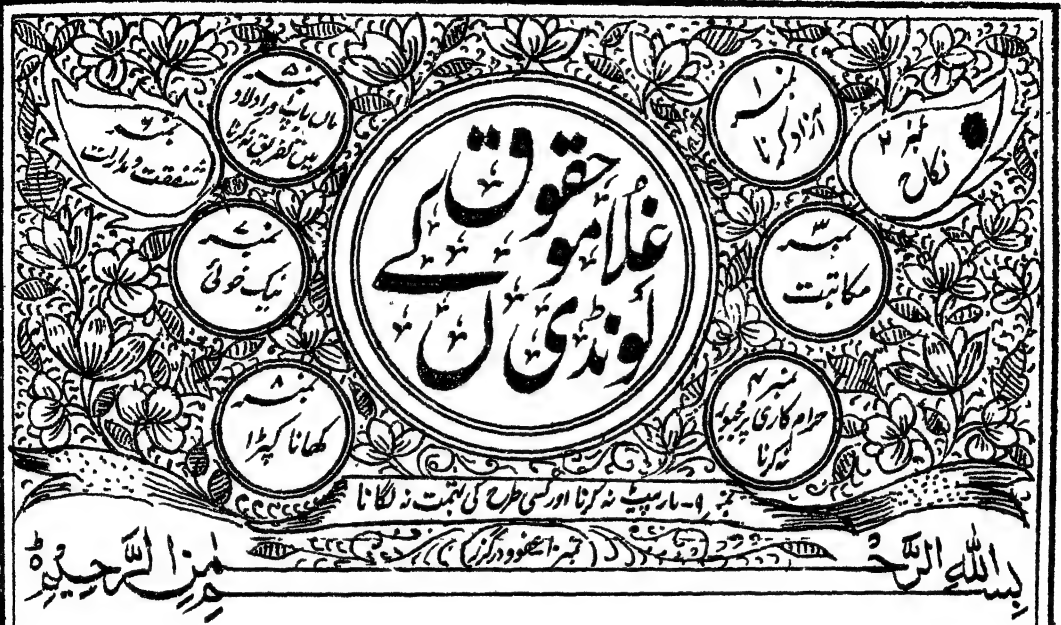 حقوق
غلامو
لونڈی ں کے
نمبر ۱
آزاد کرنا
نمبر ۲
نکاح
نمبر ۳
مکاتبت
نمبر ۴
حرام کاری پر مجبور
نہ کرنا
نمبر ۵
ماں باپ اور اولاد
میں تفریق نہ کرنا
نمبر ۶
شفقت و مدارات
نمبر ۷
نیک خوئی
نمبر ۸
کھانا کپڑا
نمبر ۹- مار پیٹ نہ کرنا اور کسی طرح کی تہمت نہ لگانا
(نمبر ۱۰ عفو و درگزر)
بسم اللہ الرحمن الرحیم